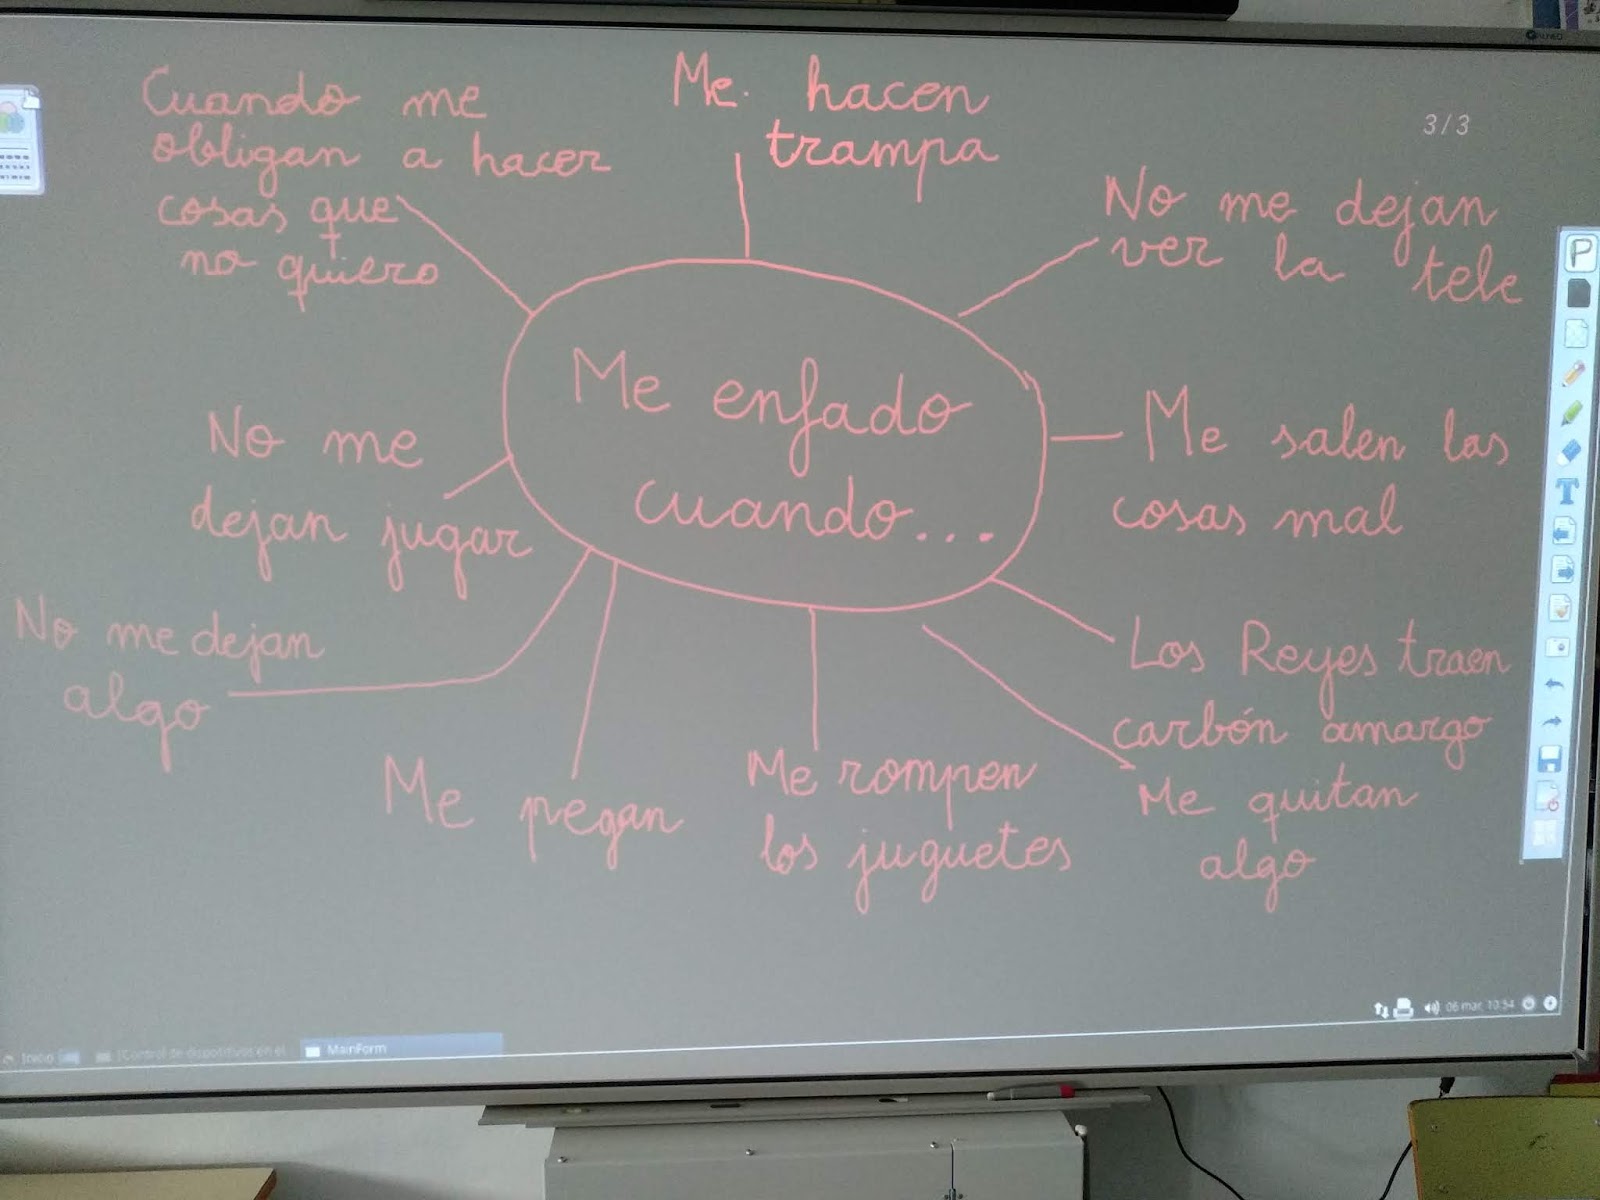 Cuando me
obligan a hacer
cosas que
no quiero
Me hacen
trampa
3/3
No me dejan
ver la tele
Me enfado
cuando...
No me
dejan jugar
Me salen las
cosas mal
No me dejan
algo
Los Reyes traen
carbón amargo
Me pegan
Me rompen
los juguetes
Me quitan
algo
P
T
06 mar, 10:54
Inicio
[Control de dispositivos en el
MainForm